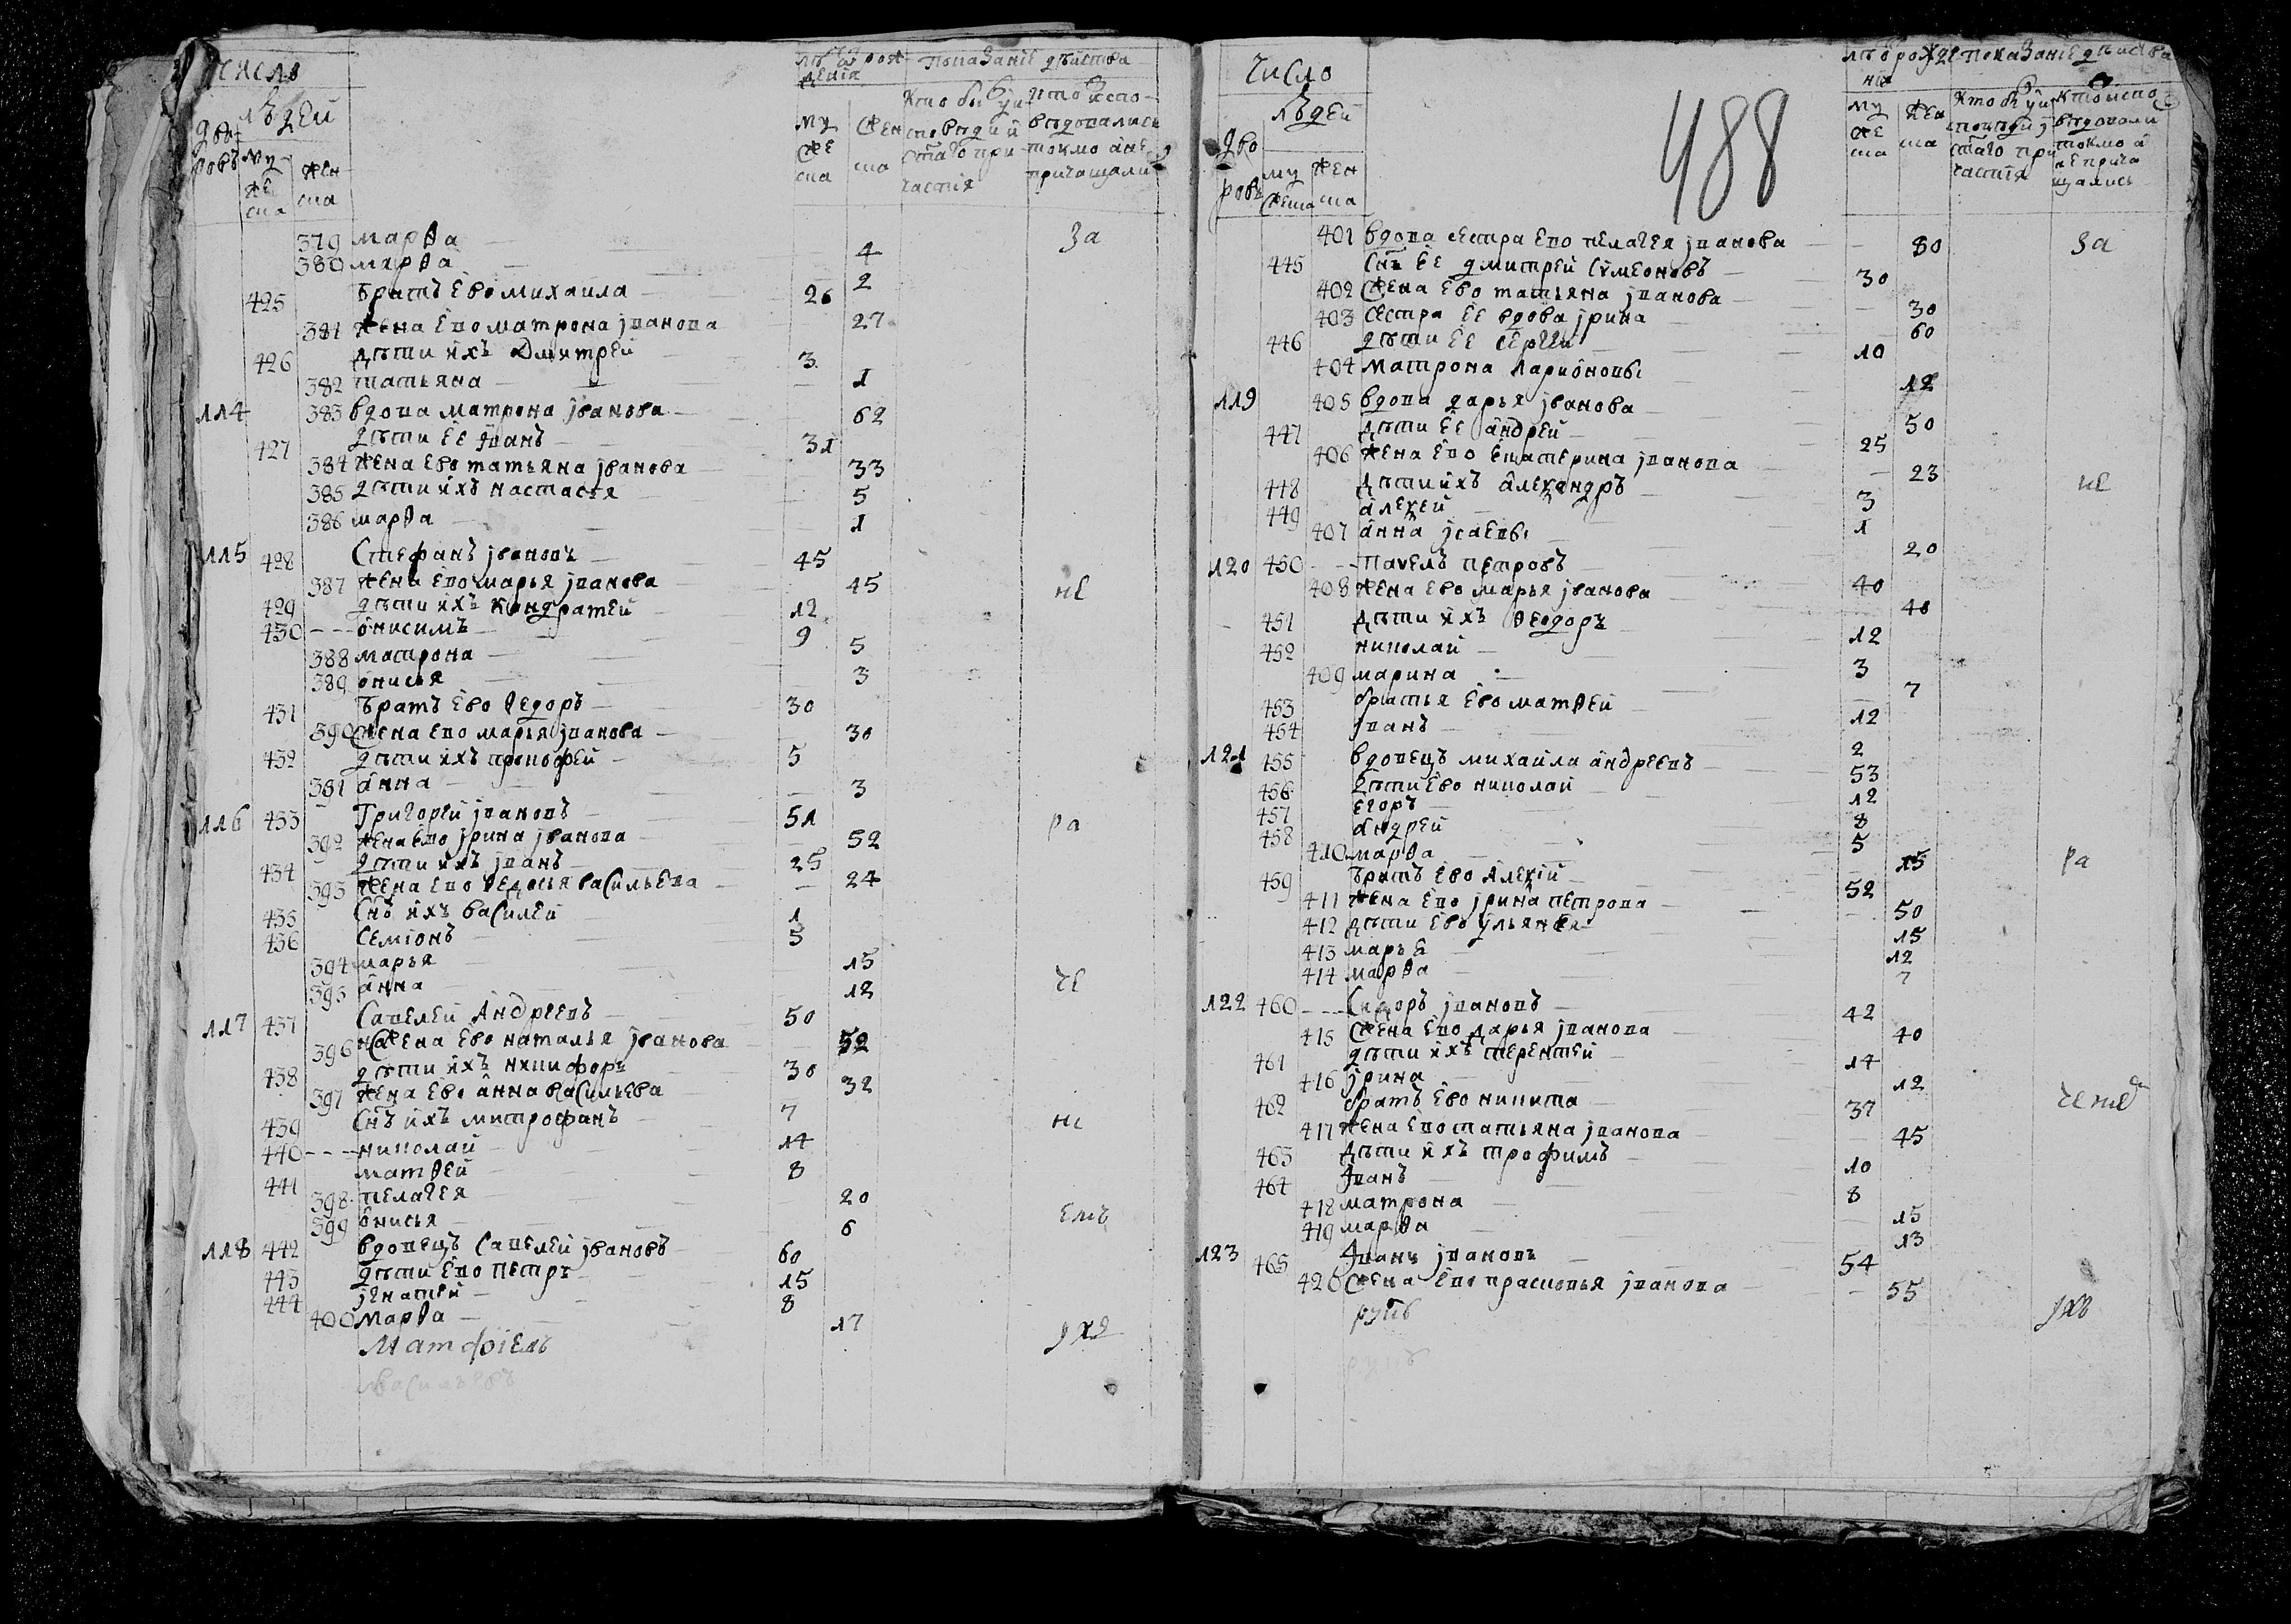 число
людей
дворовъ
муже
ска
жен
ска
лѣтъ рож
денія
показаніе дѣйства
муже
ска
жен
ска
кто былъ у ис
повѣди и
стаго при
частія
кто испо
вѣдовались
токмо а не
причащались
379 марѳа 4 за
380 марѳа 2
425 братъ ево михаила 26
381 жена ево матрона јванова 27
426 дѣти ихъ дмитрей 3
382 татьяна 1
114 383 вдова матрона јванова 62
427 дѣти ее јванъ 31
384 жена ево татьяна јванова 33
385 дѣти ихъ настасья 5
386 марѳа 1
115 428 Стефанъ јвановъ 45
387 жена ево марья јванова 45 не
429 дѣти ихъ кондратей 12
430 онисимъ 9
388 матрона 5
389 онисья 3
431 братъ ево ѳедоръ 30
390 жена ево марья јванова 30
432 дѣти ихъ прокофей 5
391 анна 3
116 433 Григорей јвановъ 51 ра
392 жена ево јрина јванова 52
434 дѣти ихъ јванъ 25
393 жена ево ѳедосья васильева 24
435 Снъ ихъ василей 1
436 Семіонъ 5
394 марья 15
395 анна 12 че
117 437 Савелей Андреевъ 50
396 жена ево наталья јванова 52
438 дѣти ихъ никифоръ 30
397 жена ево анна васильева 32
439 Снъ ихъ митрофанъ 7 ні
440 николай 14
441 матѳей 8
398 пелагея 20
399 онисья 6 емъ
118 442 вдовецъ Савелей јвановъ 60
443 дѣти ево петръ 15
444 јгнатей 8
400 марѳа 17
Матфіевъ
число
людей
дворовъ
муже
ска
жен
ска
488
лѣтъ рожде
нія
показаніе дѣйства
муже
ска
жен
ска
стаго при
частія
кто испо
вѣдовали
токмо а
не прича
щались
401 вдова сестра ево пелагея јванова 80 за
445 Снъ ее дмитрей Сѵмеоновъ 30
402 жена ево татьяна јванова 30
403 сестра ее вдова јрина 60
446 дѣти ее сергей 10
404 матрона ларионовы 12
119 405 вдова дарья јванова 50
447 дѣти ее андрей 25
406 жена ево екатерина јванова 23
448 дѣти ихъ алеѯандръ 3 не
449 алеѯей 1
407 анна јсаевы 20
120 450 павелъ петровъ 40
408 жена ево марья јванова 40
451 дѣти ихъ ѳеодоръ 12
452 николай 3
409 марина 7
453 братья ево матѳей 12
454 јванъ 2
121 455 вдовецъ михаила андреевъ 53
456 дѣти ево николай 12
457 егоръ 8
458 андрей 5
410 марѳа 15 ра
459 братъ ево алеѯій 52
411 жена ево јрина петрова 50
412 дѣти ево ульяна 15
413 марья 12
414 марѳа 7
122 460 Сидоръ јвановъ 42
415 жена ево дарья јванова 40
461 дѣти ихъ терентей 14
416 јрина 12
462 братъ ево никита 37
417 жена ево татьяна јванова 45
463 дѣти ихъ трофимъ 10
464 јванъ 8
418 матрона 15
419 марѳа 13
123 465 јванъ јвановъ 54
420 жена ево прасковья јванова 55